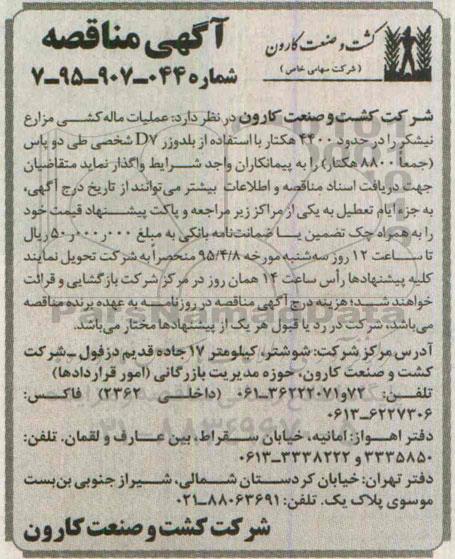 آگهی مناقصه
شماره ۰۴۴-۹۰۷-۹۵-۷
کشت و صنعت کارون
( شرکت سهامی خاص )
شرکت کشت و صنعت کارون در نظر دارد: عملیات ماله کشی مزارع
نیشکر را در حدود ۴۴۰۰ هکتار با استفاده از بلدوزر D۷ شخصی طی دو پاس
(جمعاً ۸۸۰۰ هکتار) را به پیمانکاران واجد شرایط واگذار نماید متقاضیان
جهت دریافت اسناد مناقصه و اطلاعات بیشتر می‌توانند از تاریخ درج آگهی،
به جزء ایام تعطیل به یکی از مراکز زیر مراجعه و پاکت پیشنهاد قیمت خود
را به همراه چک تضمین یا ضمانت‌نامه بانکی به مبلغ ۵۰٫۰۰۰٫۰۰۰ ریال
تا ساعت ۱۲ روز سه‌شنبه مورخه ۹۵/۴/۸ منحصراً به شرکت تحویل نمایند
کلیه پیشنهادها رأس ساعت ۱۴ همان روز در مرکز شرکت بازگشایی و قرائت
خواهند شد؛ هزینه درج آگهی مناقصه در روزنامه به عهده برنده مناقصه
می‌باشد، شرکت در رد یا قبول هر یک از پیشنهادها مختار می‌باشد.
آدرس مرکز شرکت: شوشتر، کیلومتر ۱۷ جاده قدیم دزفول - شرکت
کشت و صنعت کارون، حوزه مدیریت بازرگانی (امور قراردادها)
تلفن: ۷۲و۳۶۲۲۲۰۷۱-۰۶۱ (داخلی ۲۳۶۲) فاکس:
۰۶۱۳-۶۲۲۷۳۰۶
دفتر اهواز: امانیه، خیابان سقراط، بین عارف و لقمان. تلفن:
۳۳۳۵۸۵۰ و ۳۳۳۸۲۲۲-۰۶۱۳
دفتر تهران: خیابان کردستان شمالی، شیراز جنوبی بن‌بست
موسوی پلاک یک. تلفن: ۸۸۰۶۳۶۹۱-۰۲۱
شرکت کشت و صنعت کارون
ParsNamadData